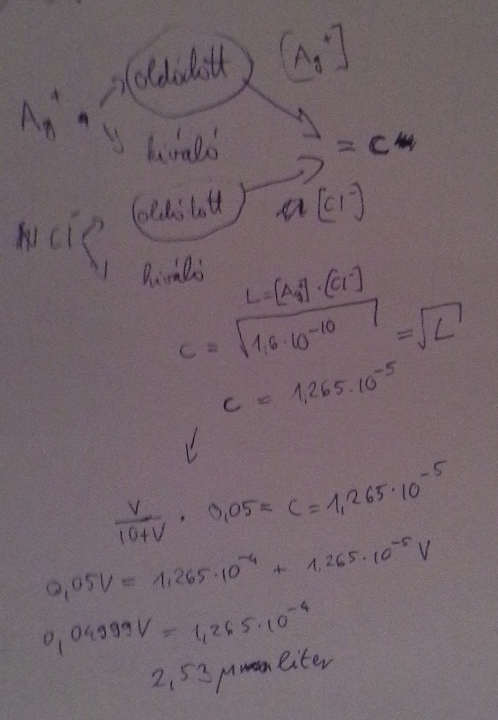 Ag⁺ oldódott [Ag⁺]
kiváló
= c
Cl⁻ oldódott [Cl⁻]
kiváló
L=[Ag⁺]·[Cl⁻]
c = √1,6·10⁻¹⁰ = √L
c = 1,265·10⁻⁵
V/(10+V) · 0,05 = c = 1,265·10⁻⁵
0,05V = 1,265·10⁻⁴ + 1,265·10⁻⁵ V
0,04999V = 1,265·10⁻⁴
2,53 μliter